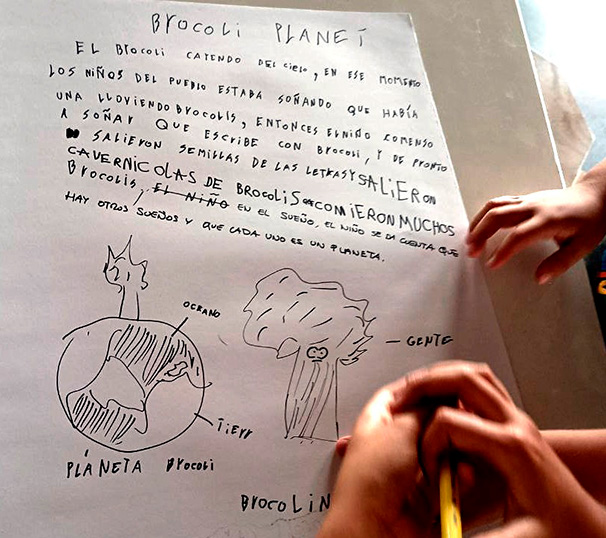 BROCOLI PLANET
EL BROCOLI CAYENDO DEL CIELO, EN ESE MOMENTO
LOS NIÑOS DEL PUEBLO ESTABA SOÑANDO QUE HABÍA
UNA LLOVIENDO BROCOLIS, ENTONCES EL NIÑO COMENSO
A SOÑAR QUE ESCRIBE CON BROCOLI, Y DE PRONTO
SALIERON SEMILLAS DE LAS LETRAS Y SALIERON
CAVERNICOLAS DE BROCOLIS COMIERON MUCHOS
BROCOLIS, EL NIÑO EN EL SUEÑO, EL NIÑO SE DA CUENTA QUE
HAY OTROS SUEÑOS Y QUE CADA UNO ES UN PLANETA.
OCEANO
GENTE
TIERR
PLÁNETA BROCOLI
BROCOLIN